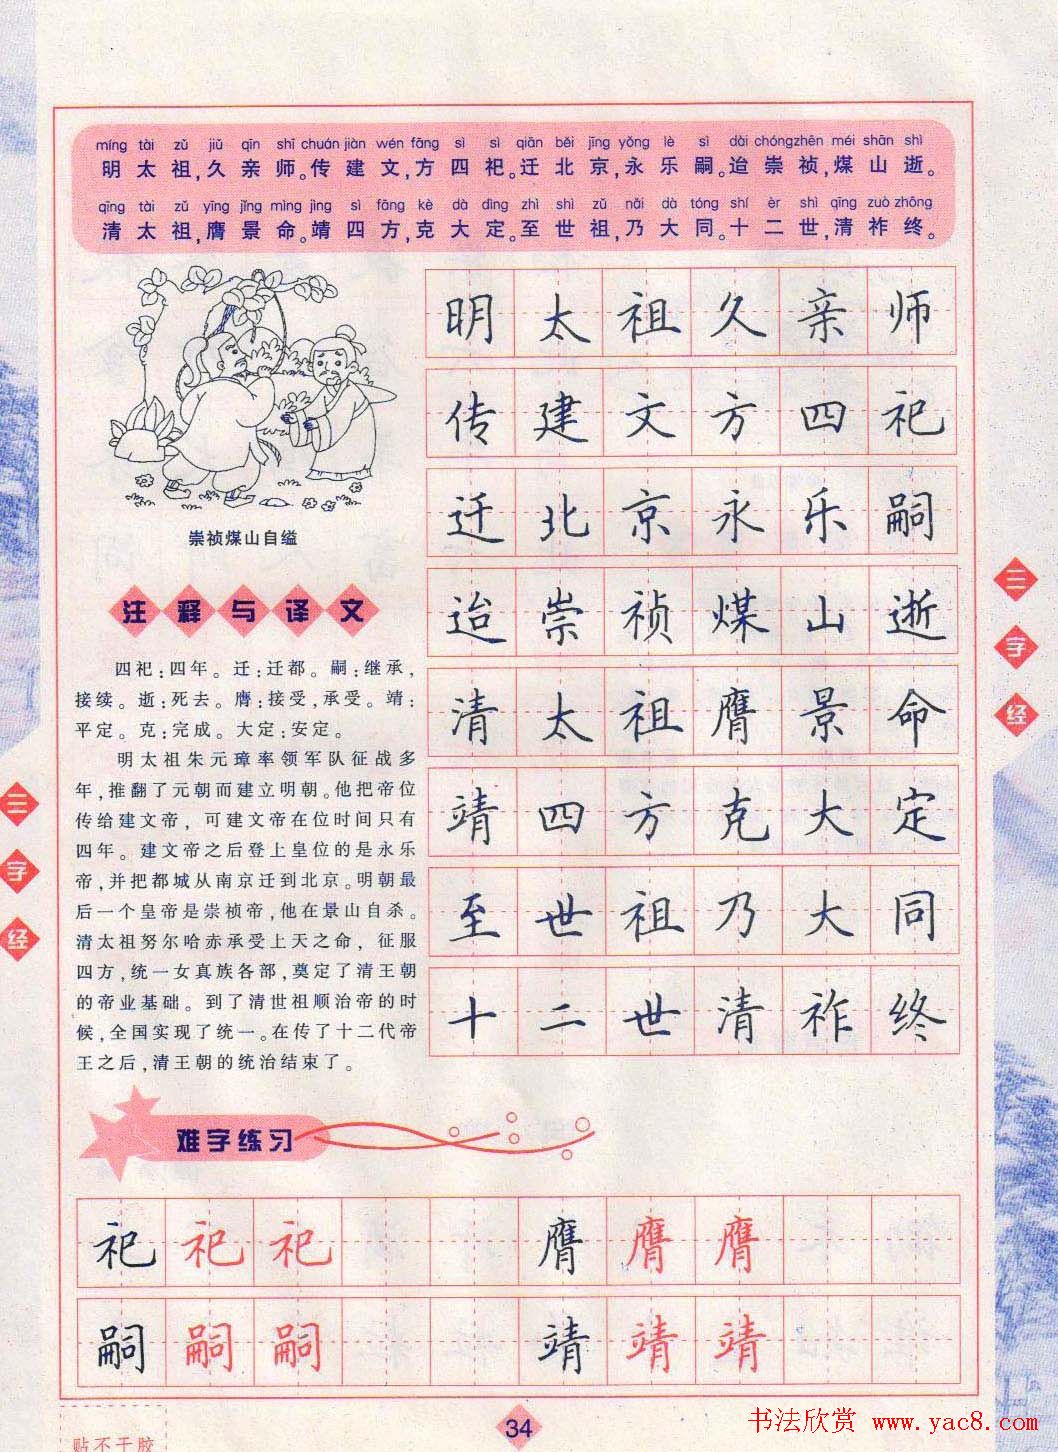 míng tài zǔ jiǔ qīn shī chuán jiàn wén fāng sì sì qiān běi jīng yǒng lè sì dài chóngzhēn méi shān shì
明太祖,久亲师。传建文,方四祀。迁北京,永乐嗣。迨崇祯,煤山逝。
qīng tài zǔ yīng jǐng mìng jìng sì fāng kè dà dìng zhì shì zǔ nǎi dà tóng shí èr shì qīng zuò zhōng
清太祖,膺景命。靖四方,克大定。至世祖,乃大同。十二世,清祚终。
崇祯煤山自缢
注释与译文
四祀:四年。迁:迁都。嗣:继承,
接续。逝:死去。膺:接受,承受。靖:
平定。克:完成。大定:安定。
明太祖朱元璋率领军队征战多
年,推翻了元朝而建立明朝。他把帝位
传给建文帝,可建文帝在位时间只有
四年。建文帝之后登上皇位的是永乐
帝,并把都城从南京迁到北京。明朝最
后一个皇帝是崇祯帝,他在景山自杀。
清太祖努尔哈赤承受上天之命,征服
四方,统一女真族各部,奠定了清王朝
的帝业基础。到了清世祖顺治帝的时
候,全国实现了统一。在传了十二代帝
王之后,清王朝的统治结束了。
明太祖久亲师
传建文方四祀
迁北京永乐嗣
迨崇祯煤山逝
清太祖膺景命
靖四方克大定
至世祖乃大同
十二世清祚终
三字经
三字经
难字练习
祀祀祀 膺膺膺
嗣嗣嗣 靖靖靖
34
贴不干胶
书法欣赏 www.yac8.com